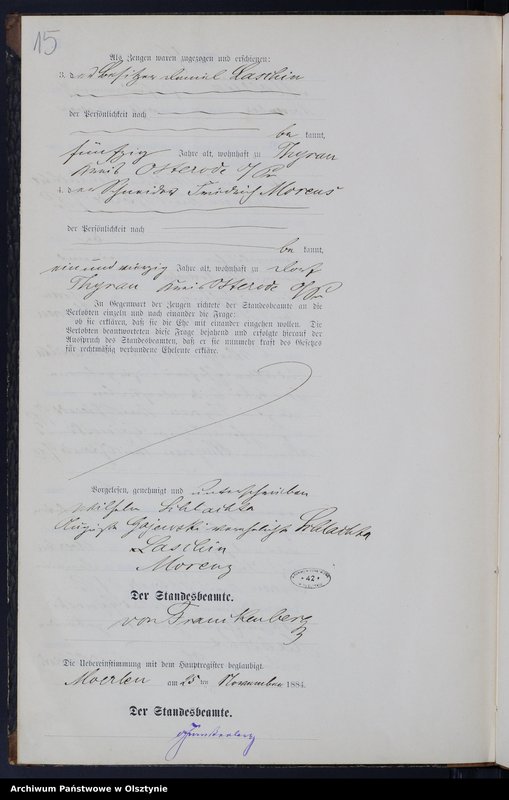 15
Als Zeugen waren zugezogen und erschienen:
3. der Besitzer Daniel Laschin
der Persönlichkeit nach
be kannt,
fünfzig Jahre alt, wohnhaft zu Thyrau
Kreis Osterode o/Pr
4. der Schneider Friedrich Morenz
der Persönlichkeit nach
be kannt,
ein und vierzig Jahre alt, wohnhaft zu Dorf
Thyrau Kreis Osterode o/Pr
In Gegenwart der Zeugen richtete der Standesbeamte an die
Verlobten einzeln und nach einander die Frage:
ob sie erklären, daß sie die Ehe mit einander eingehen wollen. Die
Verlobten beantworteten diese Frage bejahend und erfolgte hierauf der
Ausspruch des Standesbeamten, daß er sie nunmehr kraft des Gesetzes
für rechtmäßig verbundene Eheleute erkläre.
Vorgelesen, genehmigt und unterschrieben
Wilhelm Schlachta
Auguste Gojewski verehelichte Schlachta
Laschin
Morenz
42
Der Standesbeamte.
von Franckenberg
Die Uebereinstimmung mit dem Hauptregister beglaubigt.
Moerlen am 25 ten November 1884.
Der Standesbeamte.
Archiwum Państwowe w Olsztynie